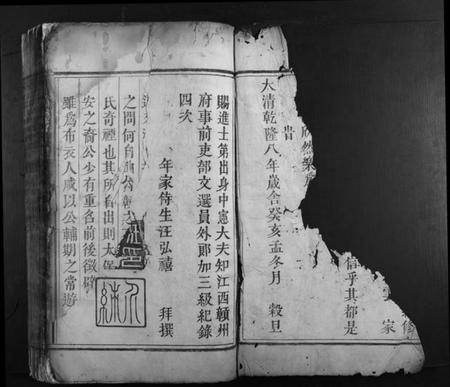 修
家
信乎其都是
欣然樂
昔
大清乾隆八年歲舍癸亥孟冬月 穀旦
賜進士第出身中憲大夫知江西贛州
府事前吏部文選員外郎加三級紀錄
四次
年家侍生汪弘禧 拜撰
之間何
氏奇禮也其所自出則大
安之裔公少有重名前後徵辟
雖為布衣人咸以公輔期之常遊